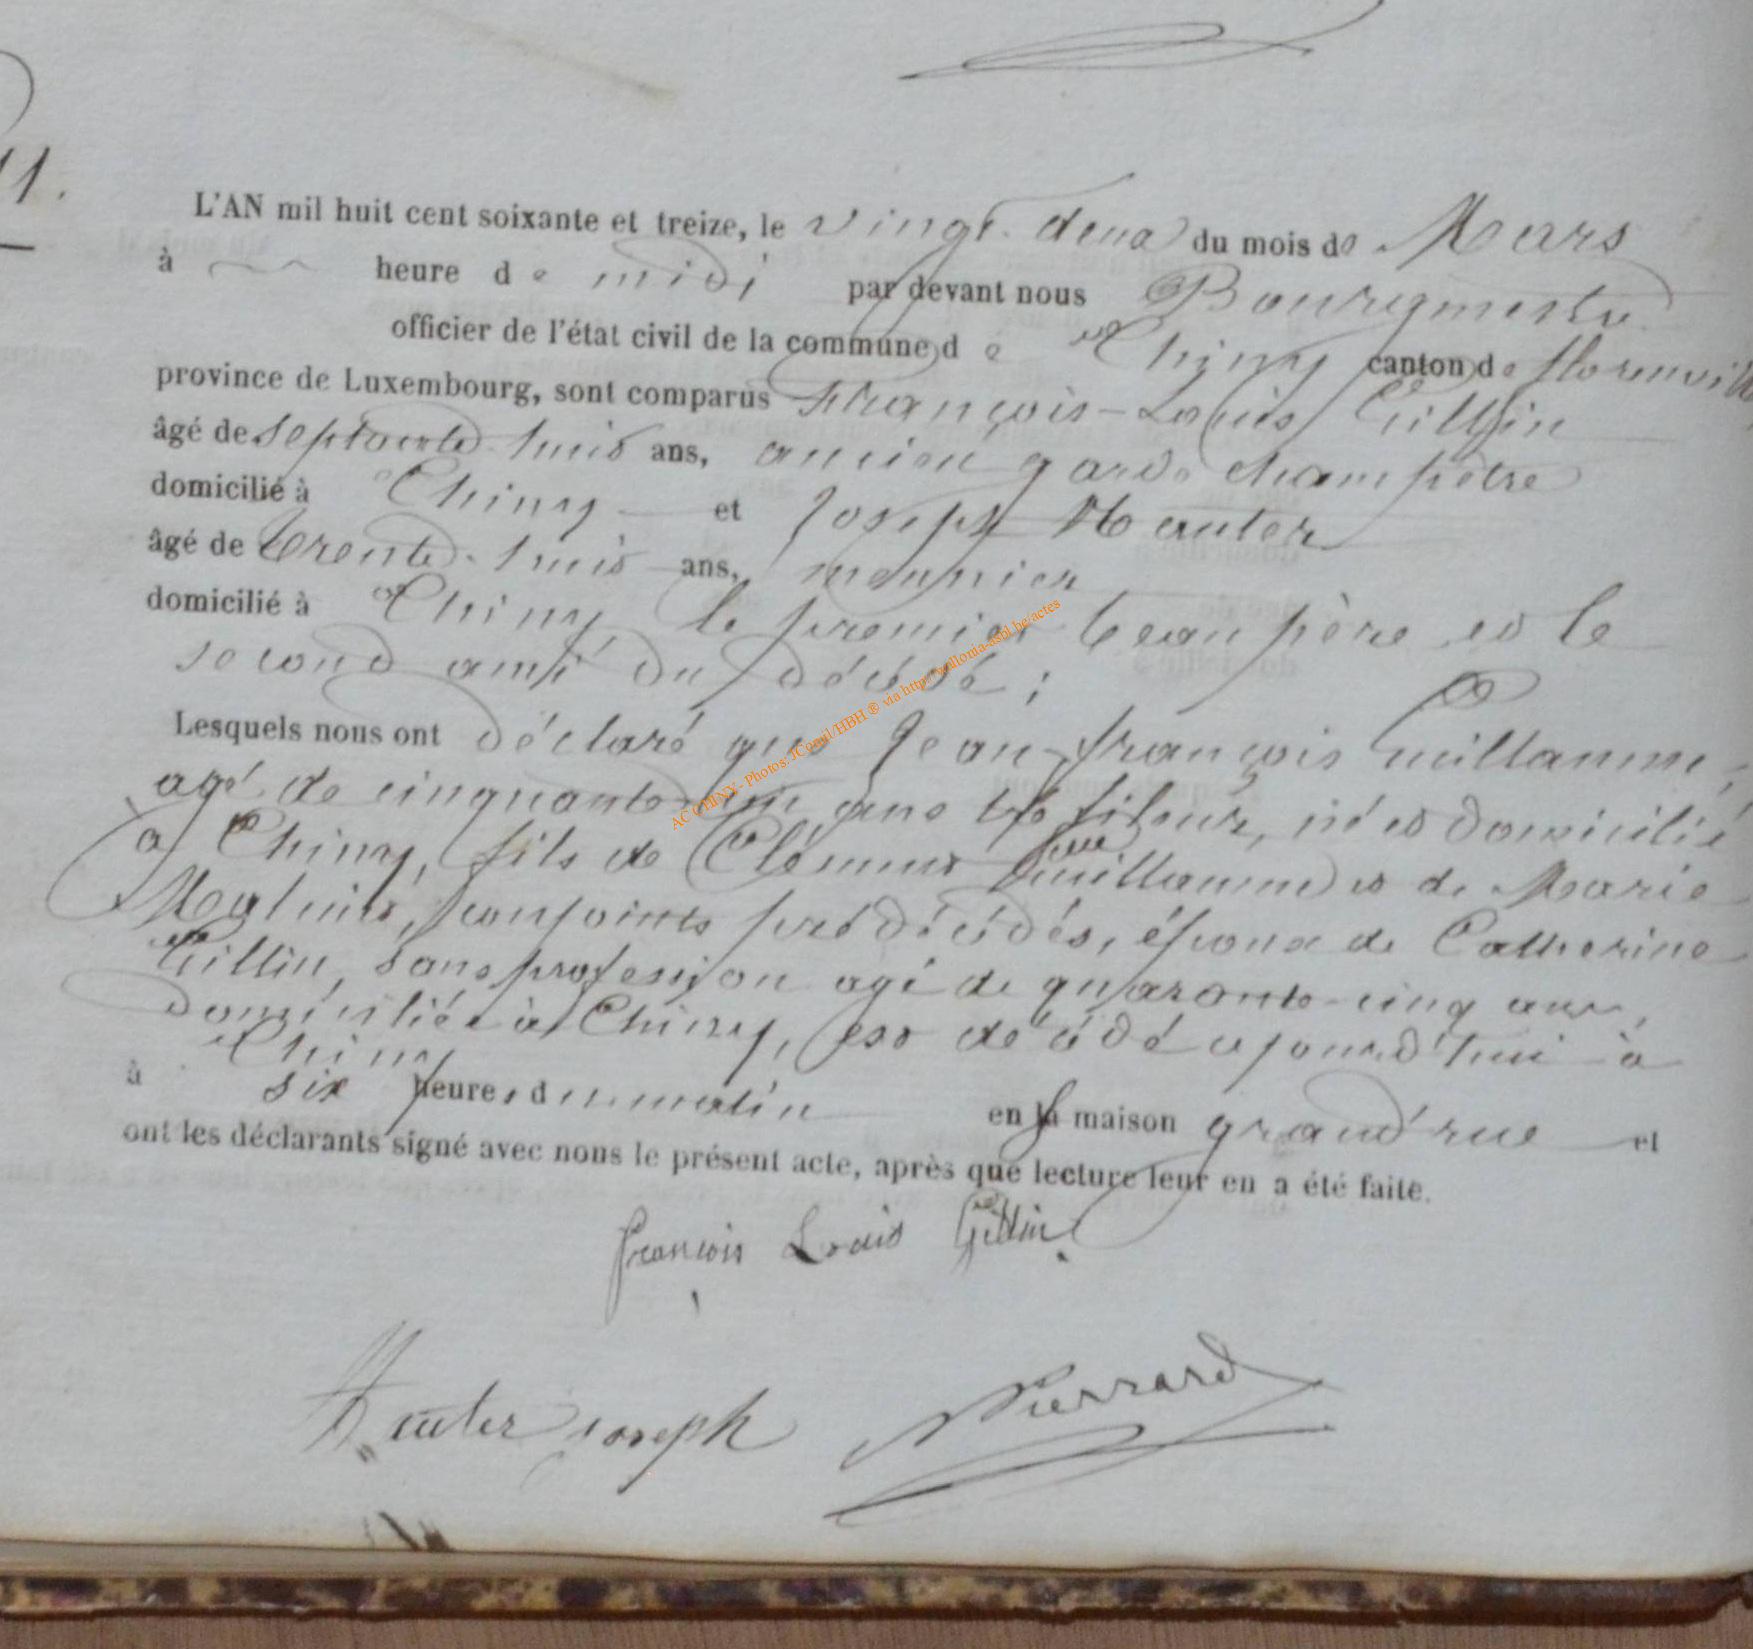 11.
L'AN mil huit cent soixante et treize, le vingt-deux du mois de Mars
à heure de midi par devant nous Bourgmestre
officier de l'état civil de la commune de Chiny canton de florenville
province de Luxembourg, sont comparus François-Louis Gillin
âgé de septante trois ans, ancien garde champêtre
domicilié à Chiny et Joseph Hauter
âgé de trente-trois ans, meunier
domicilié à Chiny, le premier beau père et le
second ami du décédé;
Lesquels nous ont déclaré que Jean-françois Guillaume,
agé de cinquante-un ans fileur, né et domicilié
à Chiny, fils de Clément Guillaume et de Marie
conjoints prédécédés, époux de Catherine
Gillin, sans profession agé de quarante-cinq ans,
domiciliée à Chiny, est décédé ajourd'hui à
Chiny
à six heures du matin en sa maison grand'rue et
ont les déclarants signé avec nous le présent acte, après que lecture leur en a été faite.
françois Louis Gillin
Hauter joseph Pierrard
AC CHINY - Photos: JComil/HBH ® via http://wallonia-asbl.be/actes